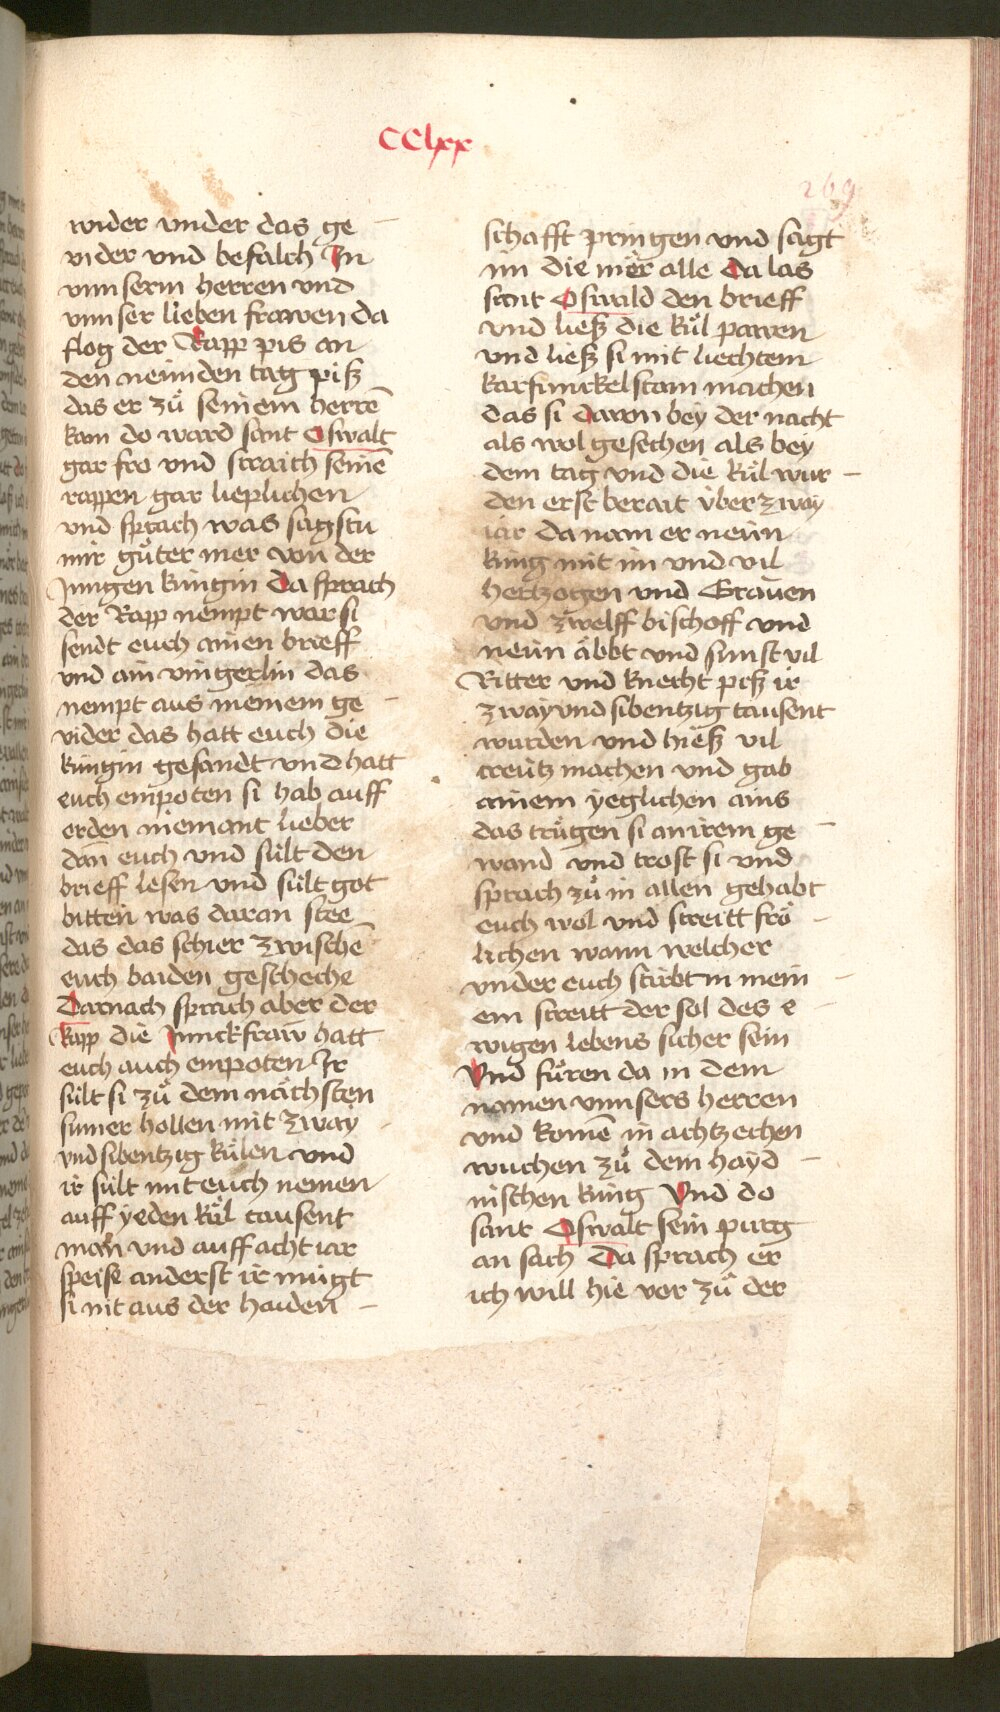 CClxx
269
wider vnder das ge
vider vnd befalch In
vnnserm herren vnd
vnnser lieben frawen da
flog der Rapp pis an
den neünden tag piß
das er zů seinem herrē
kam do ward sant Oswalt
gar fro vnd straich seinē
rappen gar lieplichen
vnd sprach was sagstu
mir gůter mer von der
Jungen küngin Da sprach
der Rapp nempt war si
sendt euch ainen brieff
vnd ain vingerlin das
nempt aus meinem ge
vider das hatt euch die
küngin gesandt vnd hatt
euch empoten si hab auff
erden niemant lieber
dan̄ euch vnd sült den
brieff lesen vnd sült got
bitten was daran stee
das das schier zwischē
euch baiden gescheche
Darnach sprach aber der
Rapp die Junckfraw hatt
euch auch empoten Ir
sült si zů dem nächsten
sumer hollen mit zway
vnd sibentzig külen vnd
ir sült mit euch nemen
auff yeden kül tausent
man vnd auff acht iar
speise anderst ir mügt
si nit aus der haiden
schafft pringen vnd sagt
im die mer alle Da las
sant Oswald den brieff
vnd ließ die kül pawen
vnd ließ si mit liechtem
karfunckelstain machen
das si daran bey der nacht
als wol gesechen als bey
dem tag vnd die kül wur
den erst berait über zway
iar da nam er neün
küng mit im vnd vil
hertzogen vnd Grauen
vnd zwelff bischoff vnd
neün äbbt vnd sunst vil
Ritter vnd knecht piß ir
zway vnd sibentzig tausent
wurden vnd hieß vil
creütz machen vnd gab
ainem yeglichen ains
das trůgen si an irem ge
wand vnd trost si vnd
sprach zů in allen gehabt
euch wol vnd streitt frö
lichen wann welcher
vnder euch stirbt in mein
em streitt der sol des e
wigen lebens sicher sein
Vnd fůren da in dem
namen vnnsers herren
vnd komē in achtzechen
wuchen zů dem hayd
nischen küng Vnd do
sant Oswalt sein purg
an sach Da sprach er
ich will hie vor zů der